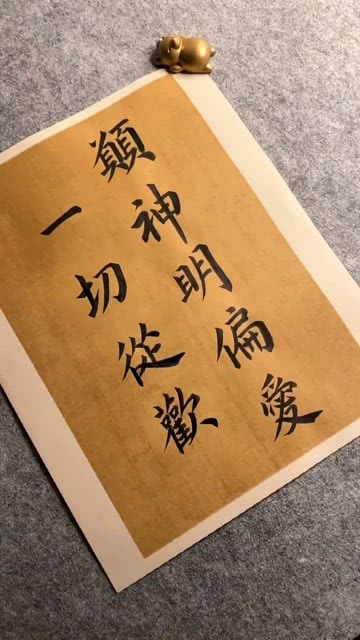 願神明偏愛
一切從歡